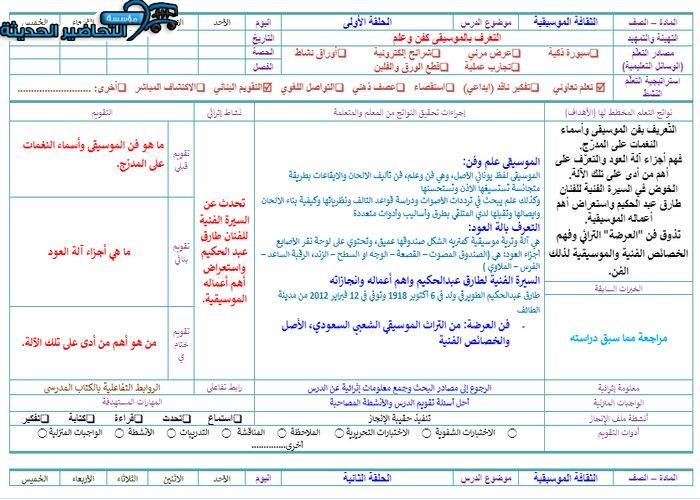 مؤسسة
التحاضير الحديثة
المادة – الصف
الثقافة الموسيقية
موضوع الدرس
الحلقة الأولى
اليوم
الأحد
الخميس
التهيئة والتمهيد
التعرف بالموسيقى كفن وعلم
التاريخ
مصادر التعلم
(الوسائل التعليمية)
سبورة ذكية
عرض مرئي
شرائح إلكترونية
أوراق نشاط
الحصة
تجارب عملية
قطع الورق والفلين
الفصل
استراتيجية التعلم
النشط
تعلم تعاوني
تفكير ناقد (إبداعي)
استقصاء
عصف ذهني
التواصل اللغوي
التقويم البنائي
الاكتشاف المباشر
أخرى: ............................
نواتج التعلم المخطط لها (الأهداف)
إجراءات تحقيق النواتج من المعلم والمتعلمة
نشاط إثرائي
التقويم
التعريف بفن الموسيقى وأسماء
النغمات على المدرّج.
فهم أجزاء آلة العود والتعرّف على
أهم من أدى على تلك الآلة.
الخوض في السيرة الفنية للفنان
طارق عبد الحكيم واستعراض أهم
أعماله الموسيقية.
تذوق فن "العرضة" التراثي وفهم
الخصائص الفنية والموسيقية لذلك
الفن.
الخبرات السابقة
مراجعة مما سبق دراسته
الموسيقى علم وفن:
الموسيقى لفظ يوناني الأصل، وهي فن وعلم، فن تأليف الالحان والايقاعات بطريقة
متجانسة تستسيغها الاذن وتستحسنها
وكذلك علم يبحث في ترددات الأصوات ودراسة قواعد التالف ونظرياتها وكيفية بناء الالحان
وايصالها وتقبلها لدي المتلقي بطرق وأساليب وأدوات متعددة
التعرف بالة العود:
هي آلة وترية موسيقية كمثريه الشكل صندوقها عميق، وتحتوي على لوحة نقر الأصابع
أجزاء العود: هي (الصندوق المصوت – القصعة – الوجه او السطح – الزند، الرقبة الساعد –
الفرس – الملاوي )
السيرة الفنية لطارق عبدالحكيم واهم أعماله وانجازاته
طارق عبدالحكيم الطويرقي ولد في 6 أكتوبر 1918 وتوفي في 12 فبراير 2012 من مدينة
الطائف
- فن العرضة: من التراث الموسيقي الشعبي السعودي، الأصل
والخصائص الفنية
تحدث عن
السيرة الفنية
للفنان طارق
عبد الحكيم
واستعراض
أهم أعماله
الموسيقية.
تقويم
قبلي
ما هو فن الموسيقى وأسماء النغمات
على المدرّج.
تقويم
بنائي
ما هي أجزاء آلة العود
تقويم
ختام
ي
من هو أهم من أدى على تلك الآلة.
معلومة إثرائية
الرجوع إلى مصادر البحث وجمع معلومات إثرائية عن الدرس
رابط تفاعلي
الروابط التفاعلية بالكتاب المدرسي
الواجبات المنزلية
أحل أسئلة تقويم الدرس والأنشطة المصاحبة
المهارات المستهدفة
أنشطة ملف الإنجاز
تنفيذ حقيبة الإنجاز
استماع
تحدث
قراءة
كتابة
تفكير
أدوات التقويم
الاختبارات الشفوية
الاختبارات التحريرية
الملاحظة
المناقشة
التدريبات
الأنشطة
الواجبات المنزلية
أخرى..............
المادة – الصف
الثقافة الموسيقية
موضوع الدرس
الحلقة الثانية
اليوم
الأحد
الاثنين
الثلاثاء
الأربعاء
الخميس